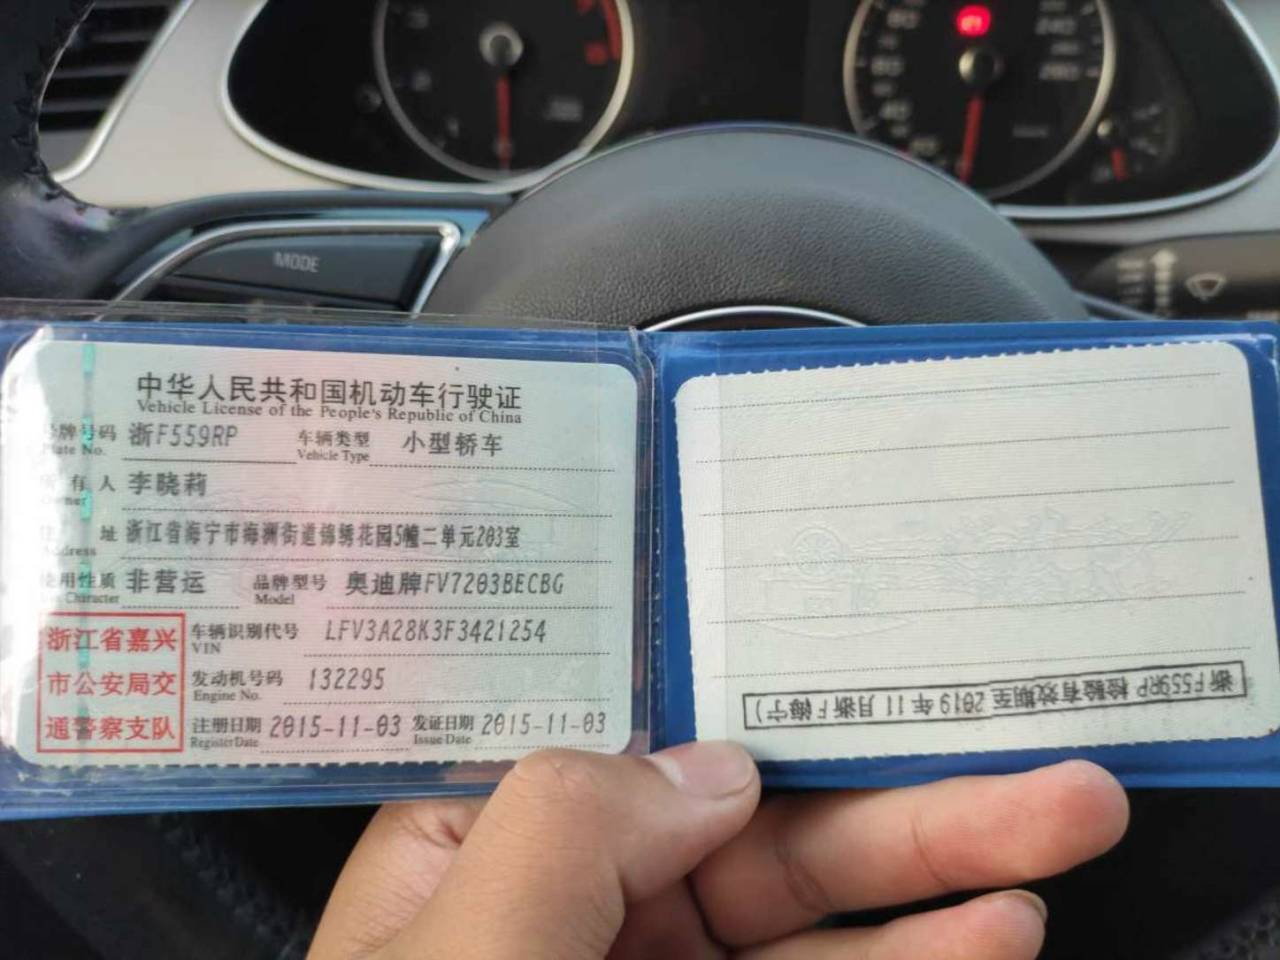 MODE
中华人民共和国机动车行驶证
Vehicle License of the People's Republic of China
号牌号码 浙F559RP 车辆类型 小型轿车
Plate No. Vehicle Type
所有人 李晓莉
Owner
住 址 浙江省海宁市海洲街道锦绣花园5幢二单元203室
Address
使用性质 非营运 品牌型号 奥迪牌FV7203BECBG
Use Character Model
浙江省嘉兴
市公安局交
通警察支队
车辆识别代号 LFV3A28K3F3421254
VIN
发动机号码 132295
Engine No.
注册日期 2015-11-03 发证日期 2015-11-03
Register Date Issue Date
浙F559RP 检验有效期至 2019年11月浙F(海宁)